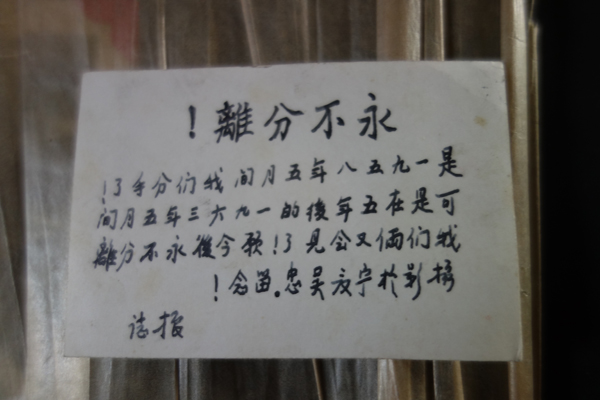 永不分離！
是一九五八年五月间我们分手了！
可是在五年後的一九六三年五月间
我们俩又会见了！願今後永不分離
摄影於宁友吴忠.留念！
振誌